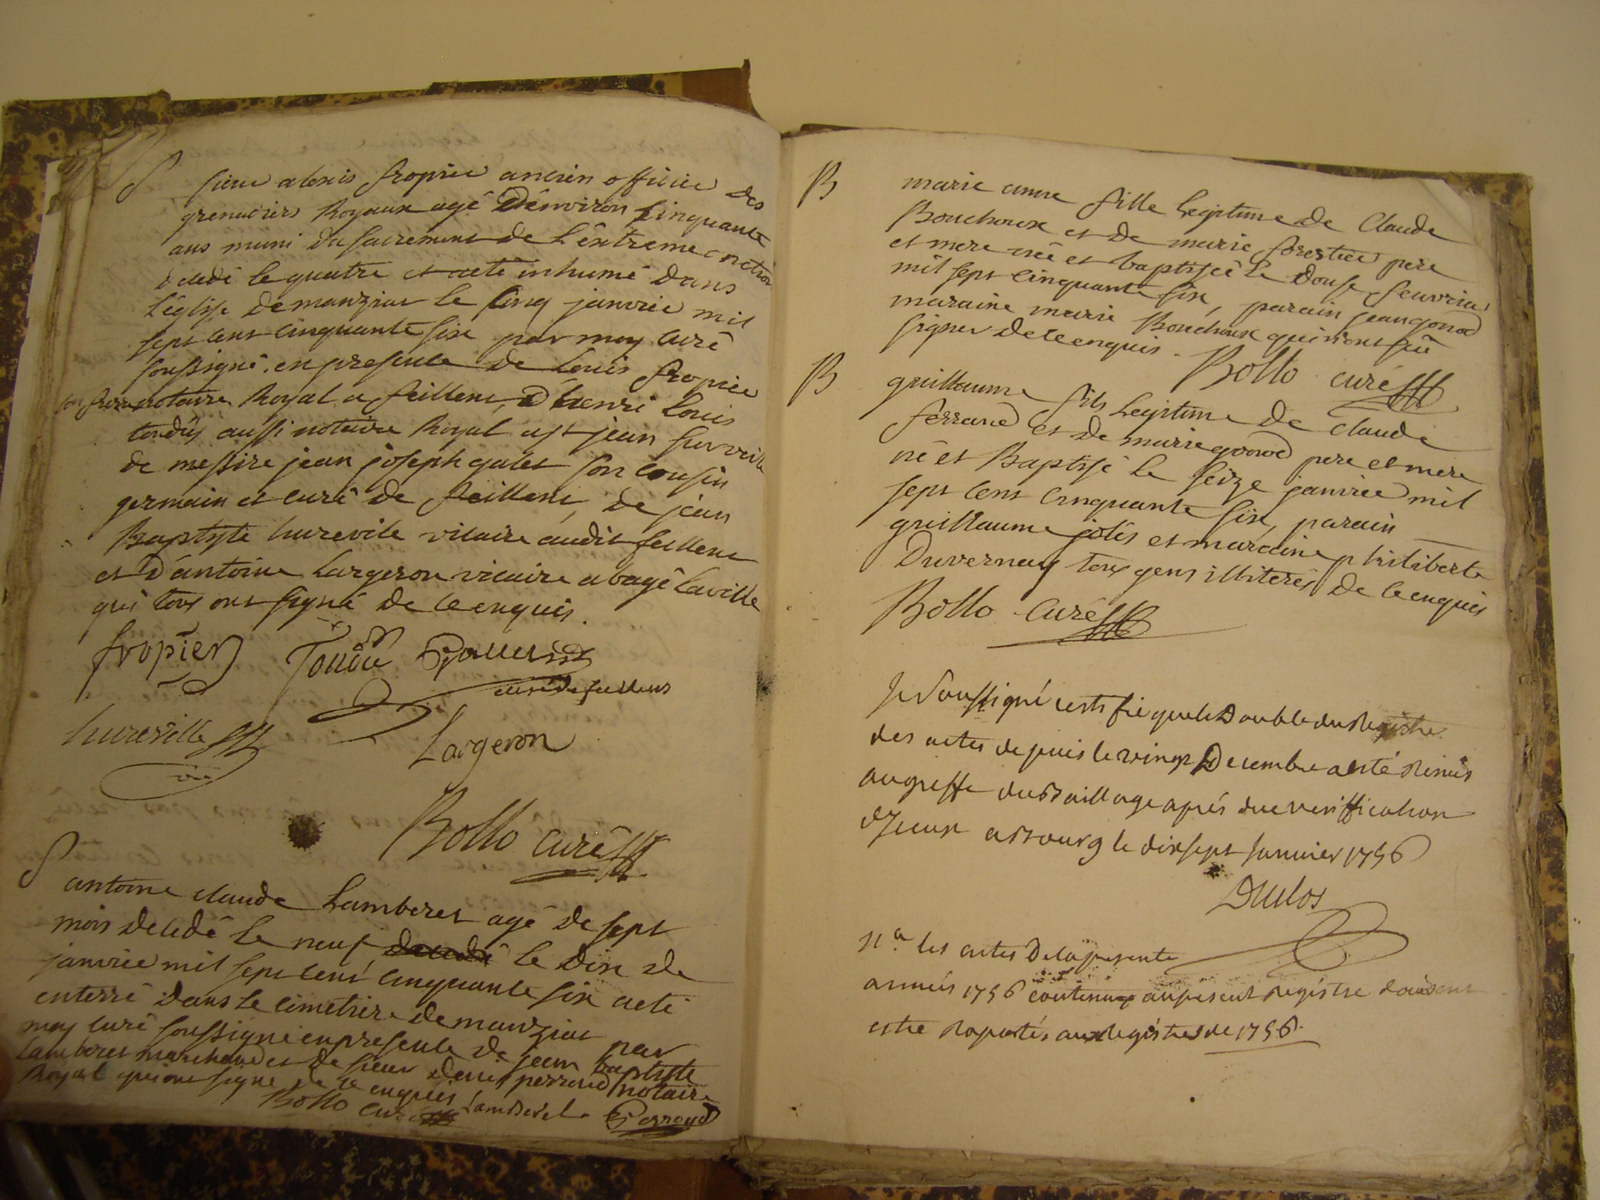 S
sieur alexis fropier ancien officier des
grenadiers Royaux agé d'environ cinquante
ans muni du sacrement de L'êxtreme onction
decedé le quatre et aeté inhumé dans
L'église de manziat le cinq janvier mil
sept cent cinquante six par moy curé
soussigné, en presence de Loüis fropier
son frere notaire Royal a feillens, d'henri Loüis
aussi notaire Royal a st jean
de messire jean joseph son cousin
germain et curé de feillens, de jean
Baptiste hureville vicaire audit feillens
et d'antoine Largeron vicaire a bagé Laville
qui tous ont signé de ce enquis.
fropier
curé de feillens
hureville
vic
Largeron
Bollo curé
S
antoine claude Lamberet agé de sept
mois decedé Le neuf le dix de
janvier mil sept cent cinquante six aeté
enterré dans Le cimetiere de manziat par
moy curé soussigné en presence de jean baptiste
Lamberet marchand et de sieur denis perroud notaire
Royal qui ont signé de ce enquis Lamberet Perroud
Bollo curé
B
marie anne fille Legitime de Claude
Bouchoux et de marie forestier pere
et mere née et baptisée Le douse jenvrier
mil sept cinquante six, parain jean gonod
maraine marie Bouchoux qui n'ont sçû
signer de ce enquis.
Bollo curé
B
guillaume fils Legitime de Claude
ferrand et de marie gonod pere et mere
né et Baptisé Le seize janvier mil
sept cent cinquante six, parain
guillaume jolis et maraine philiberte
Duvernay tous gens illiterés de ce enquis
Bollo Curé
Je soussigné certifie que le Double du Registre
des actes depuis le vingt Decembre a esté Remis
au greffe du Baillage aprés due veriffication
d'Iceux a Bourg le dix sept Janvier 1756
Duclos
Na les actes De la presente
année 1756 contenus au present Registre doivent
estre Raportés aux Registres de 1756.